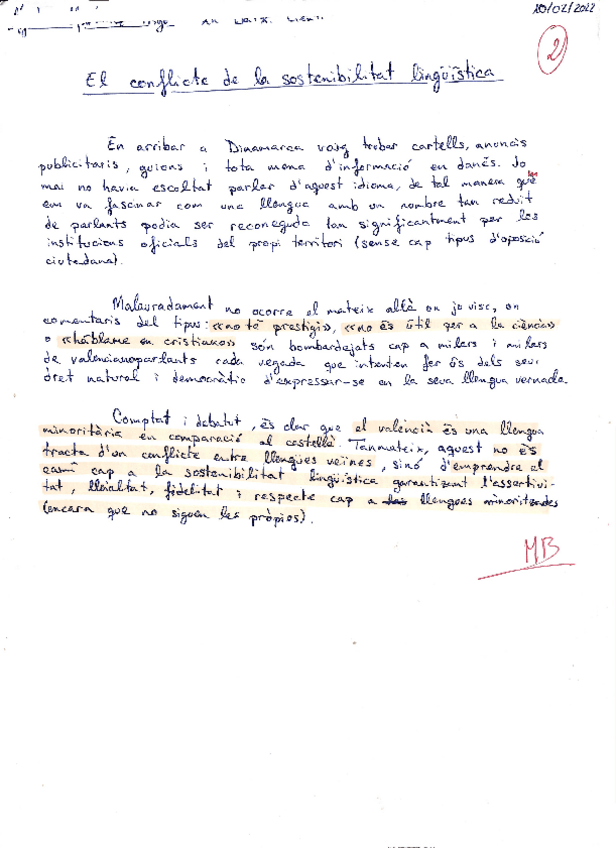 20/02/2022
2
El conflicte de la sostenibilitat lingüística
En arribar a Dinamarca vaig trobar cartells, anuncis
publicitaris, guions i tota mena d'informació en danés. Jo
mai no havia escoltat parlar d'aquest idioma, de tal manera que
em va fascinar com una llengua amb un nombre tan reduït
de parlants podia ser reconeguda tan significantment per les
institucions oficials del propi territori (sense cap tipus d'oposició
ciutadana).
Malauradament no ocorre el mateix allà on jo visc, on
comentaris del tipus: «no té prestigi», «no és útil per a la ciència»
o «háblame en cristiano» són bombardejats cap a milers i milers
de valencianoparlants cada vegada que intenten fer ús dels seu
dret natural i democràtic d'expressar-se en la seva llengua vernada.
Comptat i debatut, és clar que el valencià és una llengua
minoritària en comparació al castellà. Tanmateix, aquest no és
tracta d'un conflicte entre llengües veïnes, sinó d'emprendre el
camí cap a la sostenibilitat lingüística garantizant l'assertivi-
tat, lleialtat, fidelitat i respecte cap a llengües minoritzades
(encara que no siguen les pròpies).
MB